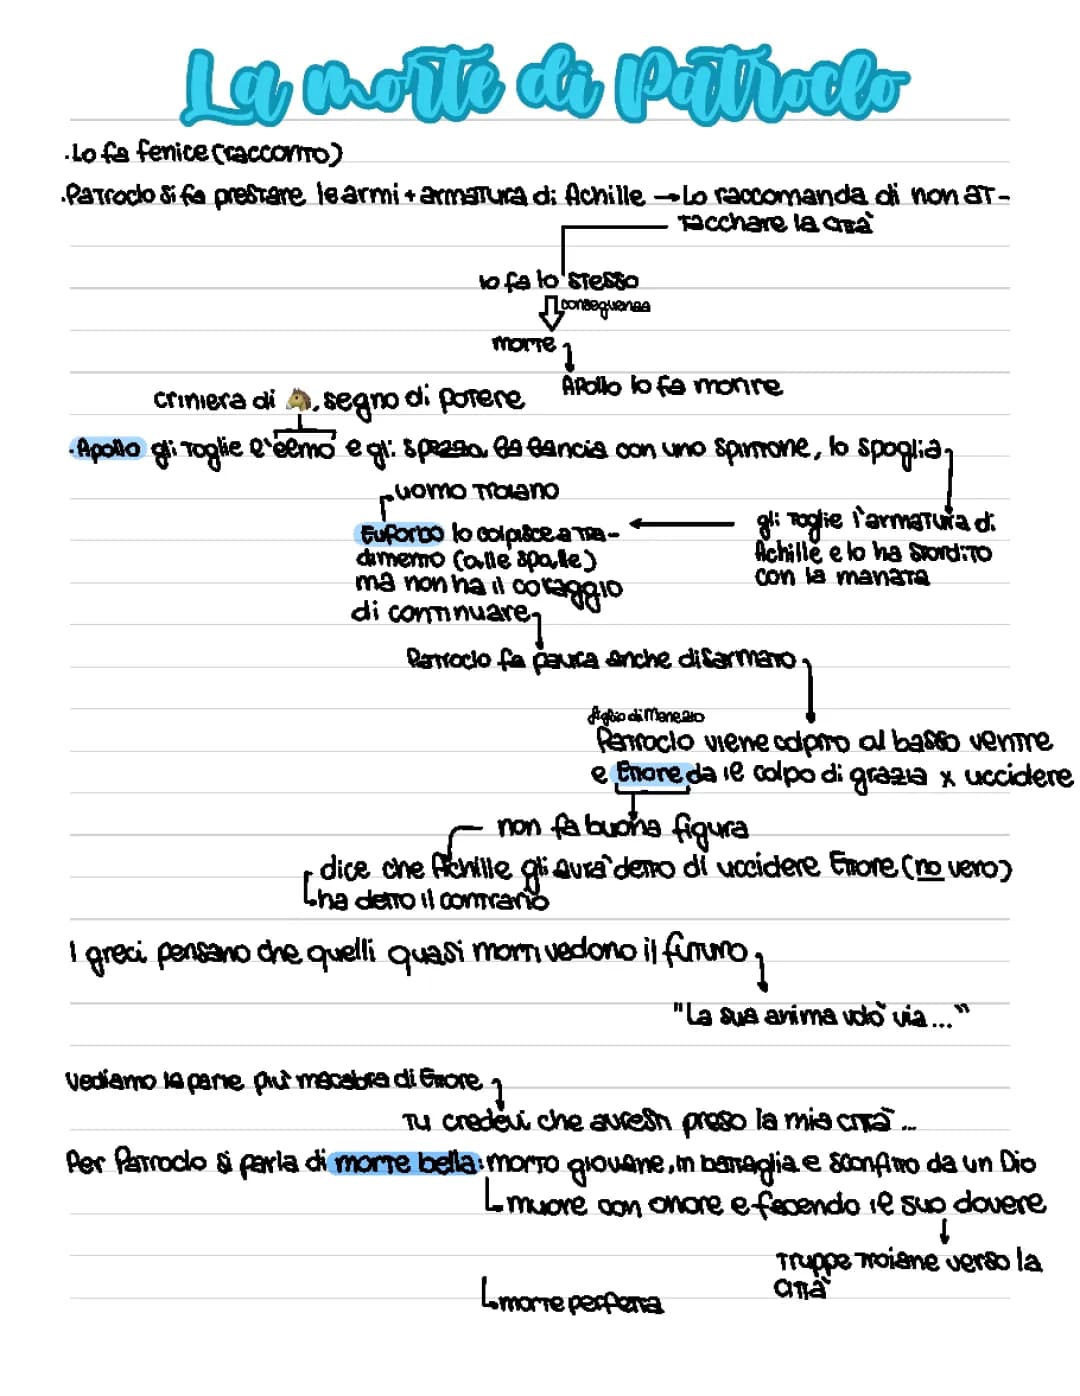 La morte di Patroclo
·Lo fa fenice (racconto)
·Patroclo si fa prestare le armi + armatura di Achille → Lo raccomanda di non at-
tacchare la città
lo fa lo stesso
conseguenza
morte
Apollo lo fa morire
criniera di 🐴, segno di potere
·Apollo gli toglie l'elmo e gli spezza la lancia con uno spintone, lo spoglia
uomo troiano
gli toglie l'armatura di
Achille e lo ha stordito
con la manata
Euforbo lo colpisce a tra-
dimento (alle spalle)
ma non ha il coraggio
di continuare
Patroclo fa paura anche disarmato
figlio di Menezio
Patroclo viene colpito al basso ventre
e Ettore da il colpo di grazia x uccidere
non fa buona figura
dice che Achille gli avrà detto di uccidere Ettore (no vero)
ha detto il contrario
I greci pensano che quelli quasi morti vedono il futuro
"La sua anima volò via..."
Vediamo la parte più macabra di Ettore
Tu credevi che avresti preso la mia città...
Per Patroclo si parla di morte bella: morto giovane, in battaglia e sconfitto da un Dio
muore con onore e facendo il suo dovere
truppe troiane verso la
città
morte perfetta